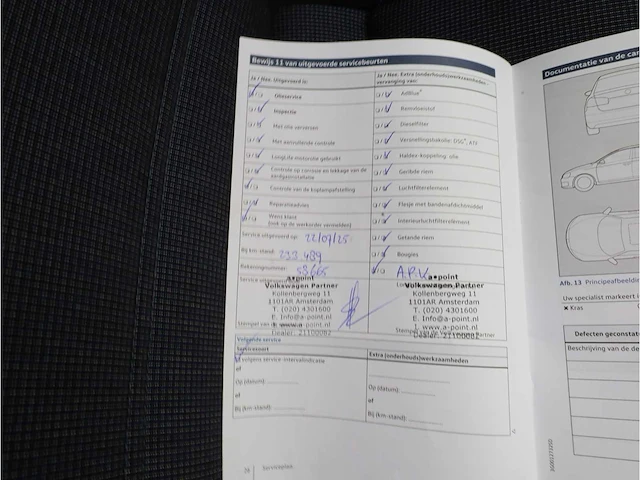 Bewijs 11 van uitgevoerde servicebeurten
Ja / Nee: Uitgevoerd is:
Olieservice
Inspectie
Met olie verversen
Met aanvullende controle
LongLife motorolie gebruikt
Controle op corrosie en lekkage van de aardgasinstallatie
Controle van de koplampafstelling
Reparatieadvies
Wens klant
(ook op de werkorder vermelden)
Service uitgevoerd op: 22/07/25
Bij km-stand: 293.489
Rekeningnummer: 58665
Service uitgevoerd
a•point
Volkswagen Partner
Kollenbergweg 11
1101AR Amsterdam
T. (020) 4301600
E. Info@a-point.nl
I: www.a-point.nl
Dealer: 21100082
Stempel van de
Ja / Nee: Extra (onderhouds)werkzaamheden - vervanging van:
AdBlue®
Remvloeistof
Dieselfilter
Versnellingsbakolie: DSG®, AG
Haldex-koppeling: olie
Geribde riem
Luchtfilterelement
Flesje met bandenafdichtmiddel
Interieurluchtfilterelement
Getande riem
Bougies
A.P.K
a•point
Volkswagen Partner
Kollenbergweg 11
1101AR Amsterdam
T. (020) 4301600
E. Info@a-point.nl
I: www.a-point.nl
Stempel van de Volkswagen Partner
Dealer: 21100082
Volgende service
Servicesoort
Volgens service-intervalindicatie
of
Op (datum):
of
Bij (km-stand):
Extra (onderhouds)werkzaamheden
of
Op (datum):
of
Bij (km-stand):
Serviceplan
Documentatie van de car
Afb. 13 Principeafbeelding
Uw specialist markeert
✕ Kras
Defecten geconstate
Beschrijving van de de